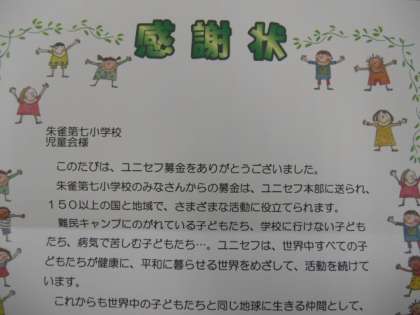 感謝状
朱雀第七小学校
児童会様
このたびは、ユニセフ募金をありがとうございました。
朱雀第七小学校のみなさんからの募金は、ユニセフ本部に送られ、
１５０以上の国と地域で、さまざまな活動に役立てられます。
難民キャンプにのがれている子どもたち、学校に行けない子ども
たち、病気で苦しむ子どもたち…。ユニセフは、世界中すべての子
どもたちが健康に、平和に暮らせる世界をめざして、活動を続けて
います。
これからも世界中の子どもたちと同じ地球に生きる仲間として、